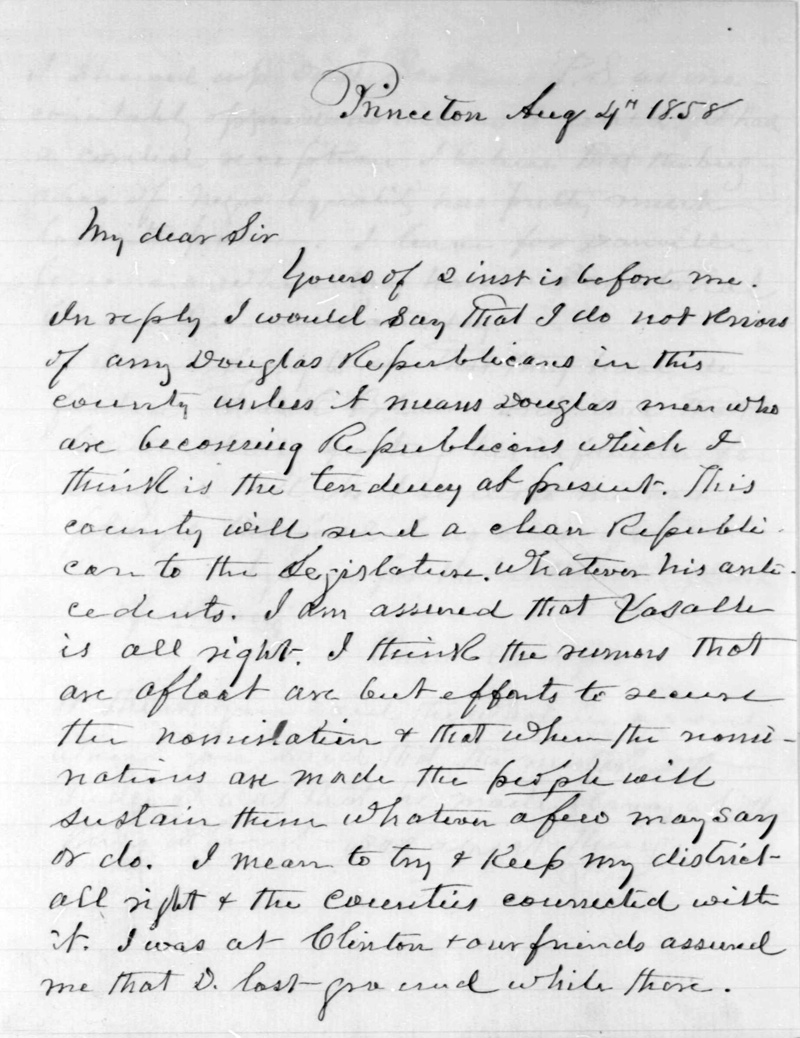 Princeton Aug 4th 1858
My dear Sir
Yours of 2 inst is before me.
In reply I would say that I do not know
of any Douglas Republicans in this
county unless it means Douglas men who
are becoming Republicans which I
think is the tendency at present. This
county will send a clean Republi-
can to the Legislature. Whatever his ante-
cedents. I am assured that Vasalle
is all right. I think the rumors that
are afloat are but efforts to secure
the nomination & that when the nomi-
nations are made the people will
sustain them whatever a few may say
or do. I mean to try & keep my district
all right & the counties connected with
it. I was at Clinton & our friends assured
me that D. lost ground while there.